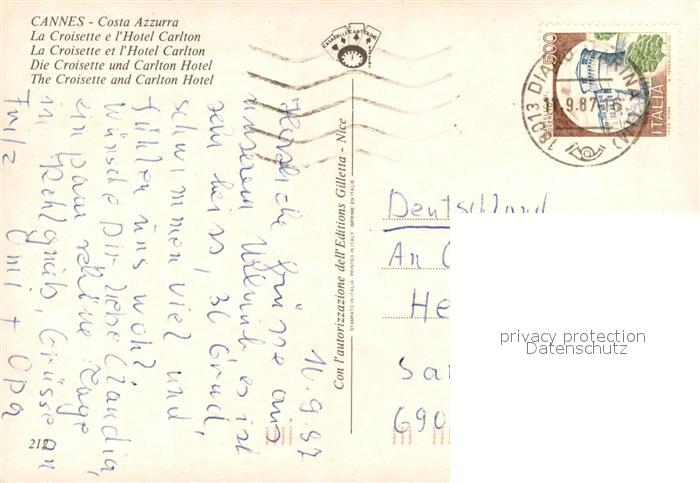 CANNES - Costa Azzurra
La Croisette e l'Hotel Carlton
La Croisette et l'Hotel Carlton
Die Croisette und Carlton Hotel
The Croisette and Carlton Hotel
10.9.87
Herzliche Grüsse aus
unserem Urlaub es ist
sehr heiss, 36 Grad,
schwimmen viel und
fühlen uns wohl
Wünsche Dir liebe Claudia,
ein paar schöne Tage
in Grüsse an
Omi + Opa
212
Con l'autorizzazione dell'Editions Gilletta - Nice
STAMPATO IN ITALIA - PRINTED IN ITALY - IMPRIME EN ITALIE
500
ITALIA
18013 DIANO MARINA (IM)
11.9.87-16
Deutschland
An
He
Sa
690
privacy protection
Datenschutz